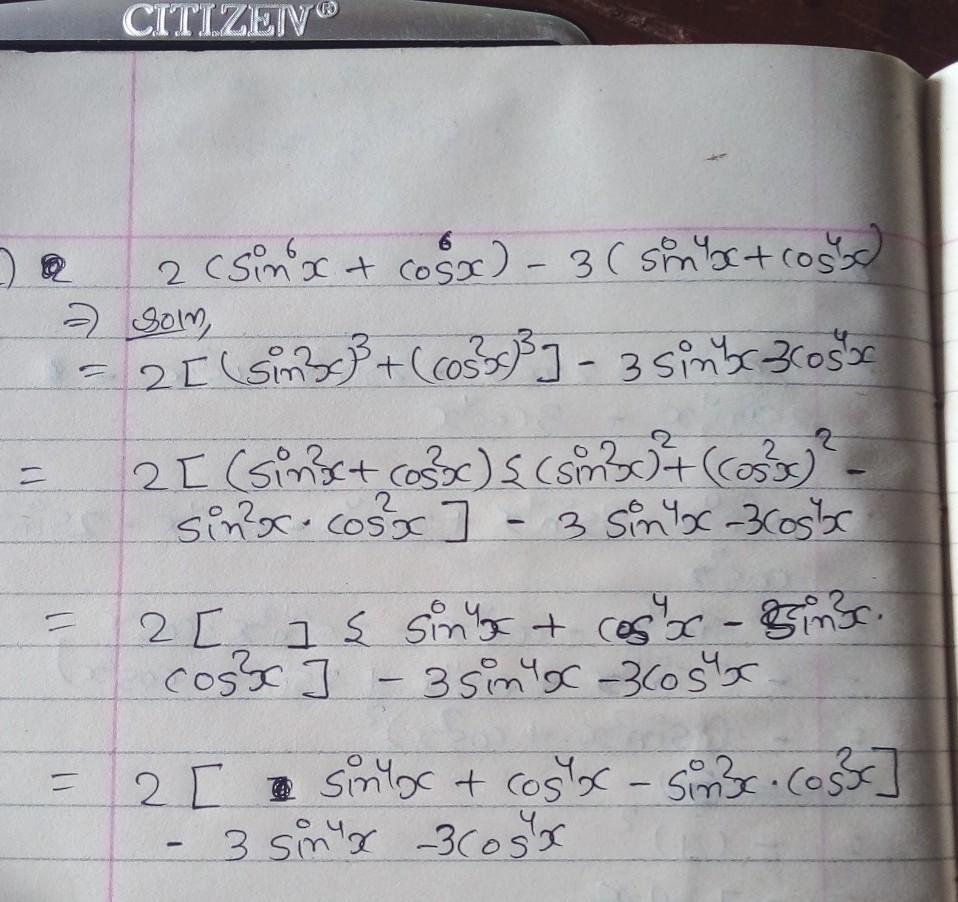 CITIZEN®
2 (sin⁶x + cos⁶x) - 3 (sin⁴x + cos⁴x)
⇒ Soln,
= 2 [ (sin²x)³ + (cos²x)³ ] - 3 sin⁴x - 3cos⁴x
= 2 [ (sin²x + cos²x) { (sin²x)² + (cos²x)² -
sin²x · cos²x ] - 3 sin⁴x - 3cos⁴x
= 2 [ 1 { sin⁴x + cos⁴x - sin²x ·
cos²x ] - 3 sin⁴x - 3cos⁴x
= 2 [ sin⁴x + cos⁴x - sin²x · cos²x ]
- 3 sin⁴x - 3cos⁴x